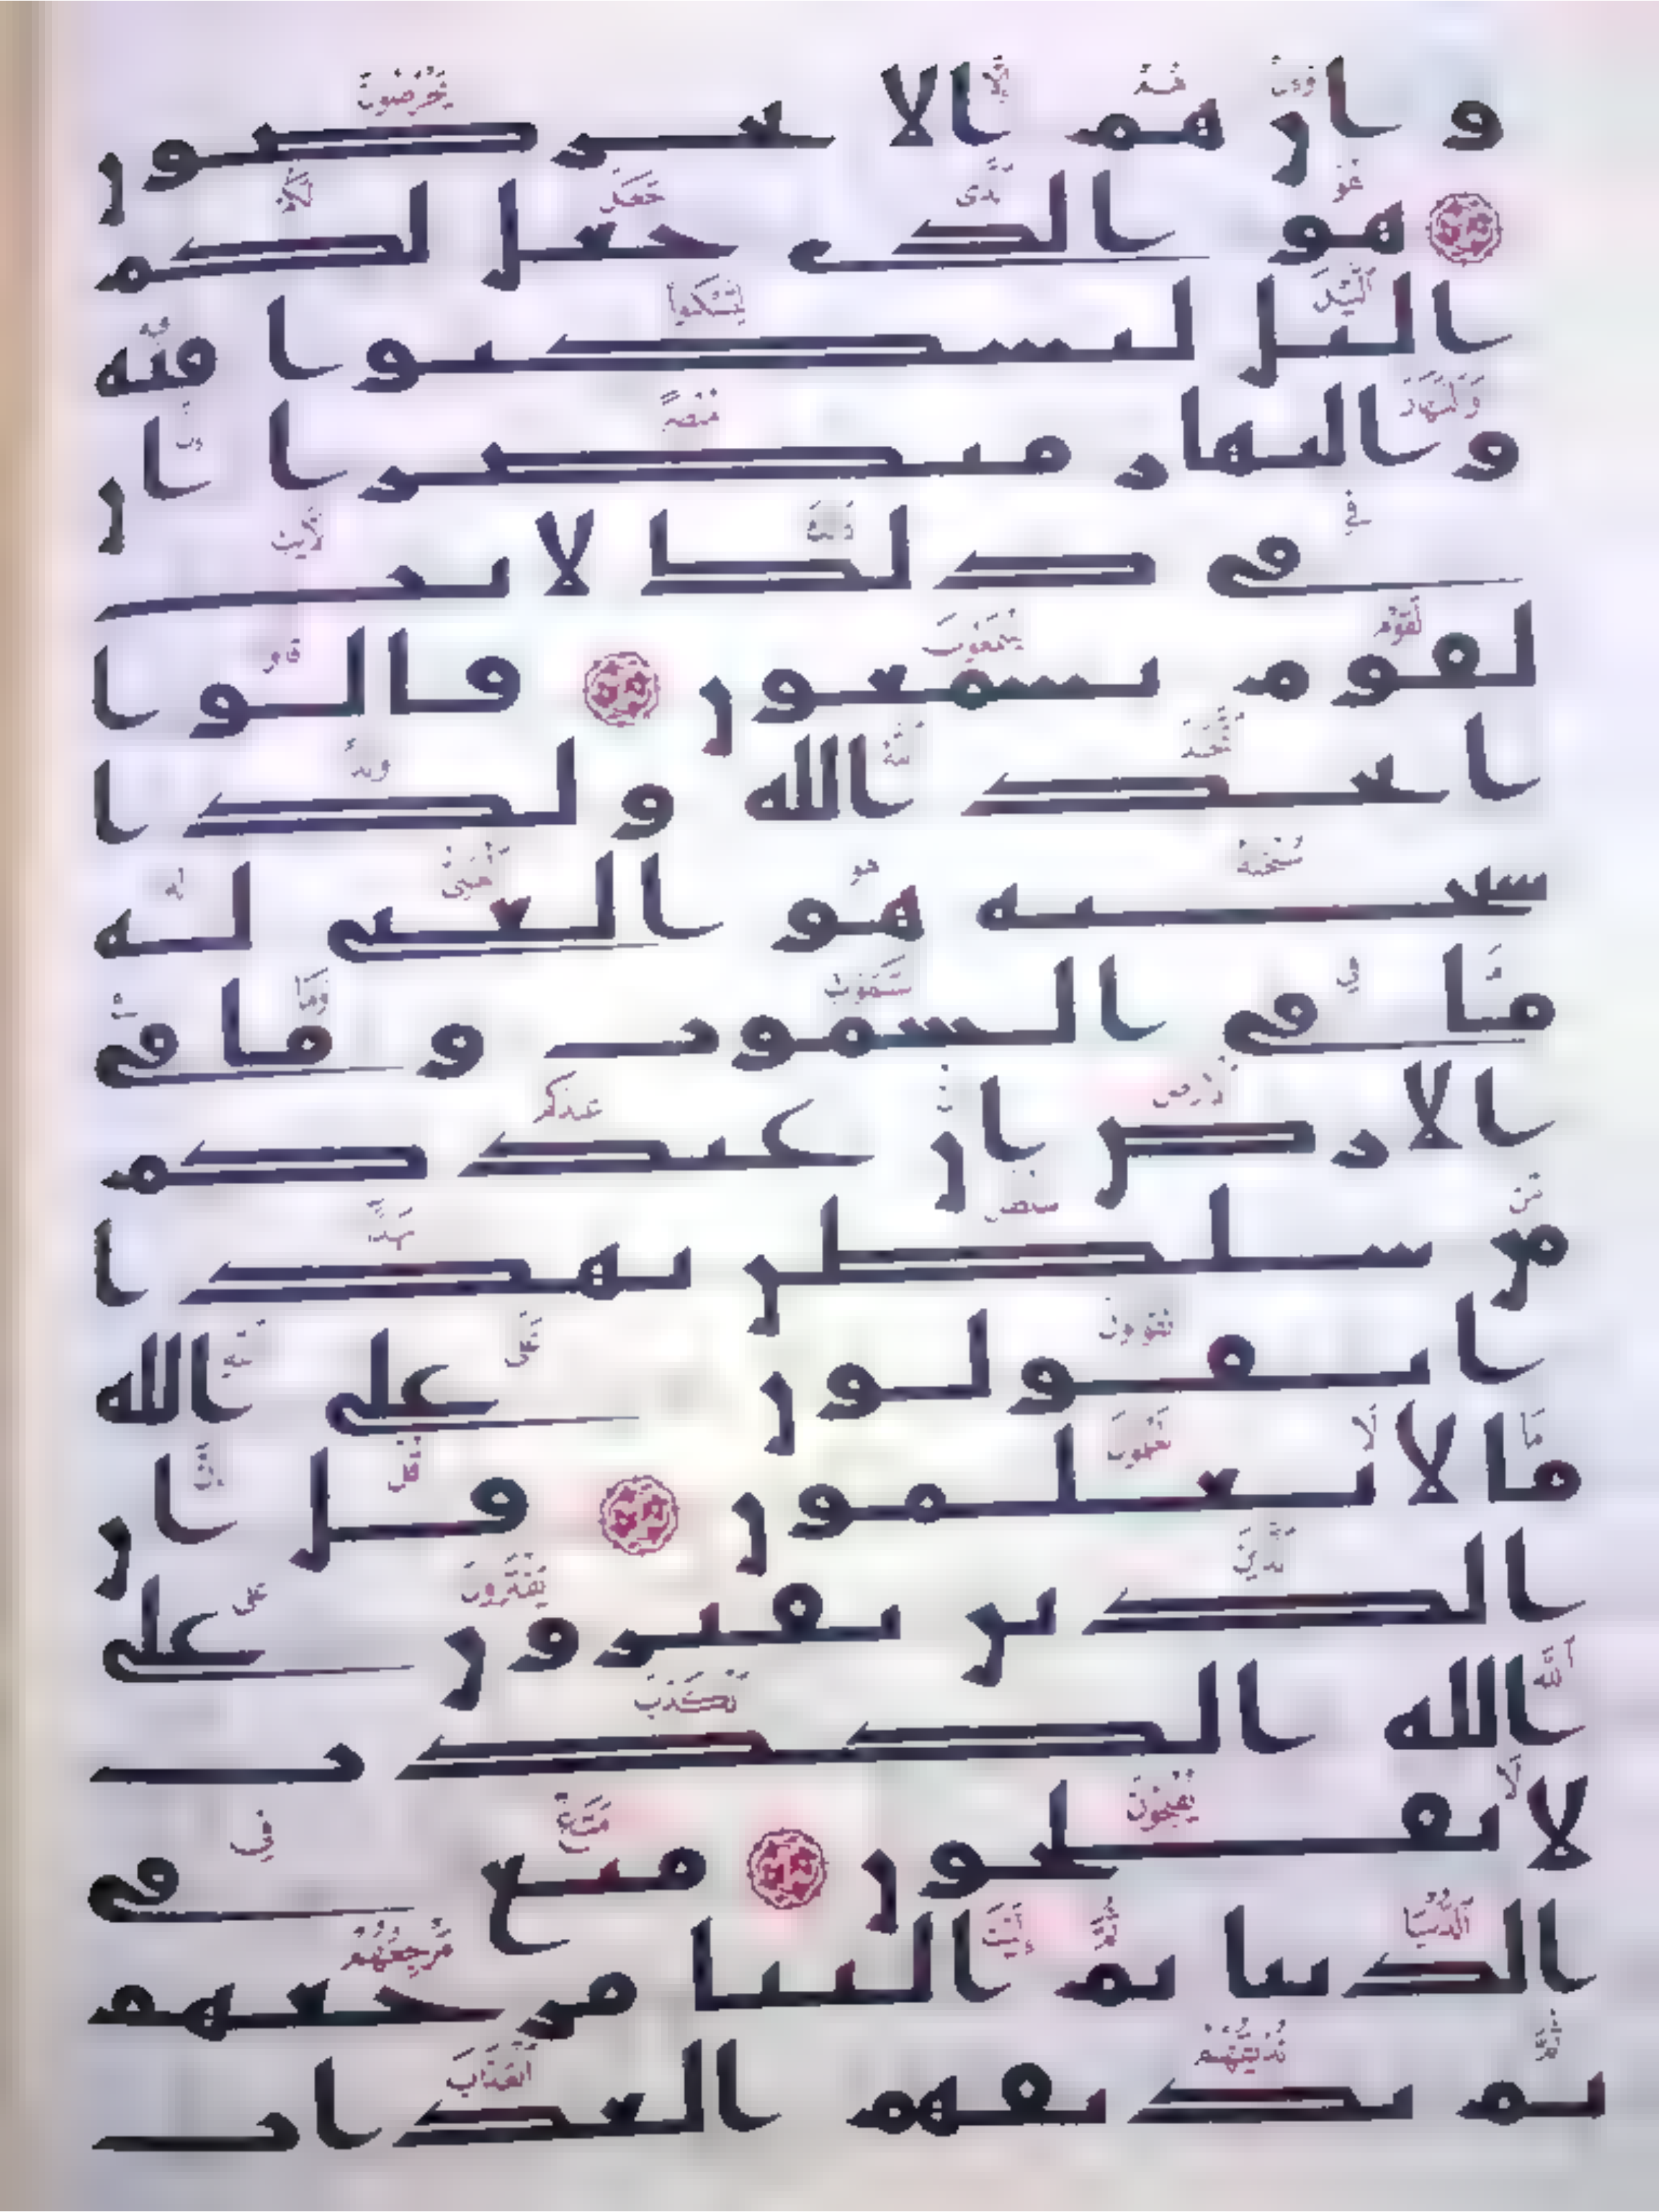 و ان هم الا يخرصون
هو الذي جعل لكم
اليل لتسكنوا فيه
والنهار مبصرا ان
في ذلك لايت
لقوم يسمعون قالوا
اتخذ الله ولدا
سبحنه هو الغني له
ما في السموت و ما في
الارض ان عندكم
من سلطن بهذا
اتقولون على الله
ما لا تعلمون قل ان
الذين يفترون على
الله الكذب
لا يفلحون متع في
الدنيا ثم الينا مرجعهم
ثم نذيقهم العذاب